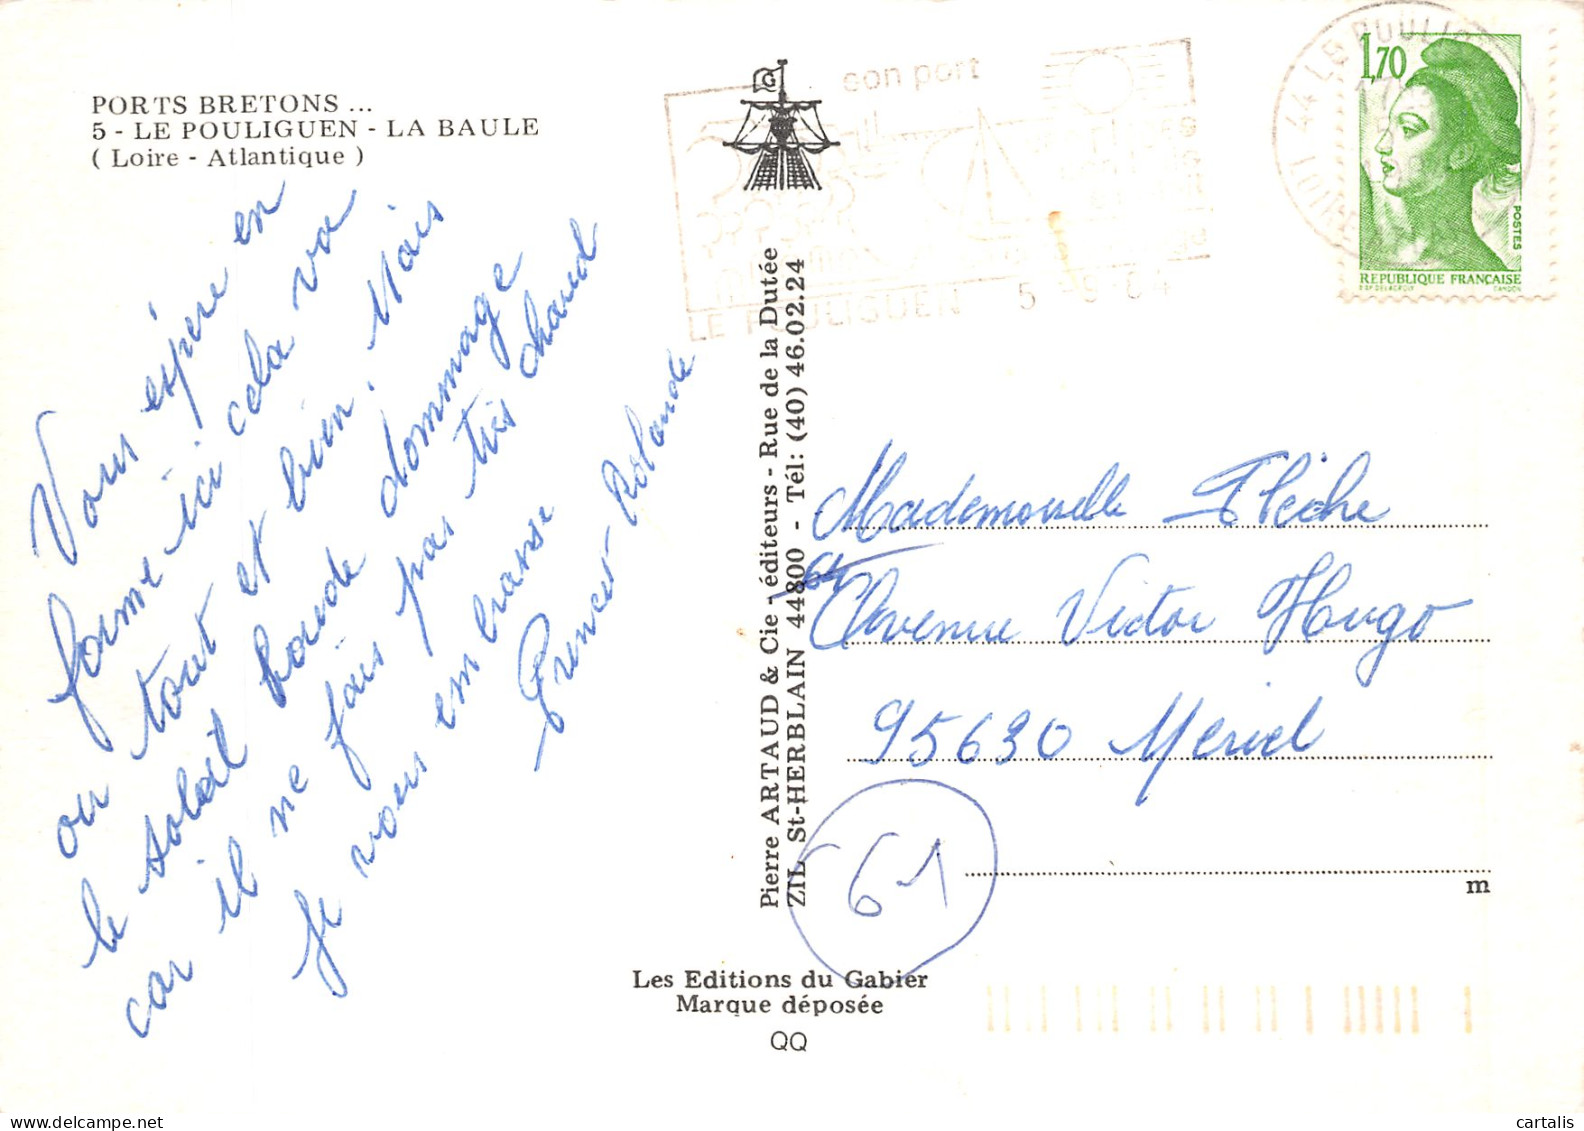 PORTS BRETONS ...
5 - LE POULIGUEN - LA BAULE
( Loire - Atlantique )
Vous espère en
forme ici cela va
on tout et bien. Mais
le soleil boude dommage
car il ne fais pas très chaud
Je vous embrasse
Roland
G
son port
LE POULIGUEN 5
44 LE POULIG
LOIRE
1,70
POSTES
REPUBLIQUE FRANÇAISE
Pierre ARTAUD & Cie - éditeurs - Rue de la Dutée
ZIL St-HERBLAIN 44800 - Tél: (40) 46.02.24
Mademoiselle Flèche
Avenue Victor Hugo
95630 Meriel
61
m
Les Editions du Gabier
Marque déposée
QQ
cartalis